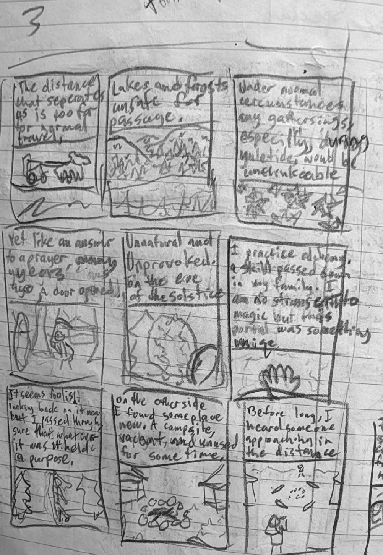 3
The distance
that seperates
us is too far
for normal
travel,
Lakes and forests
unsafe for
passage.
Under normal
circumstances
any gatherings,
especially during
yuletide, would be
unthinkable
Yet like an answer
to a prayer
years
ago A door opened
Unnatural and
Unprovoked.
on the eve
of the Solstice
I practice
a skill passed down
in my family. I
am no stranger to
magic but this
portal was something
unique
It seems foolish
looking back on it now
but I passed through
sure that whatever
it was it held
a purpose.
on the other side
I found someplace
new. A campsite,
vacant, and unused
for some time.
Before long, I
heard someone
approaching in
the distance